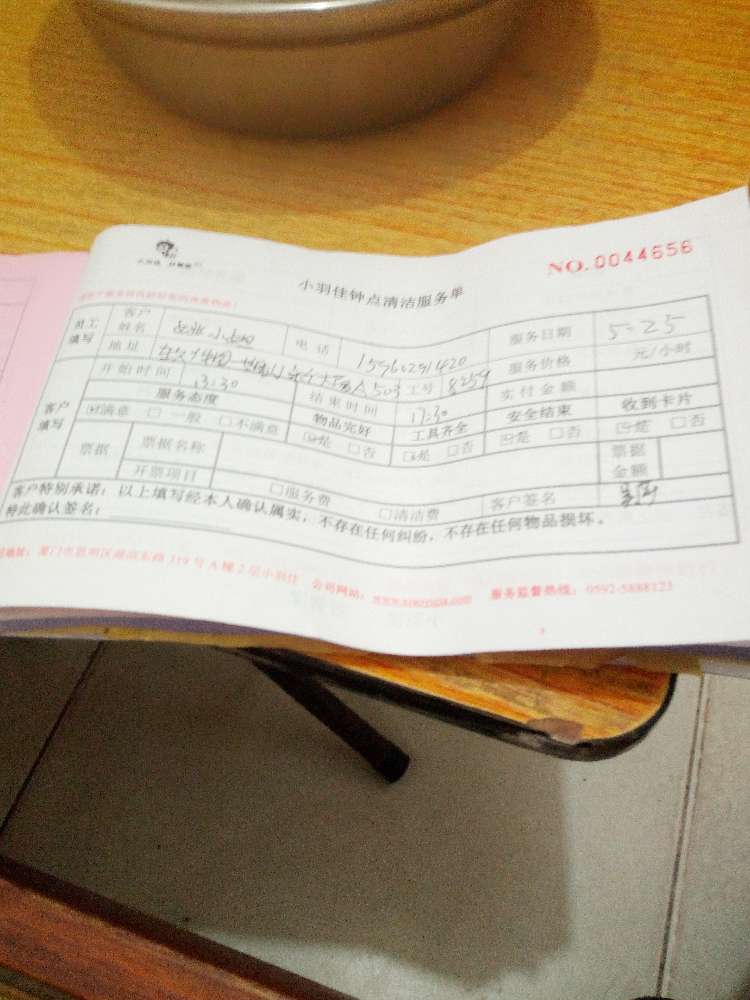 NO.0044656
小羽佳钟点清洁服务单
员工填写 客户姓名 电话 15960291420 服务日期 5-25
地址 503 工号 8259 服务价格 元/小时
客户填写 开始时间 13:30 结束时间 17:30 实付金额
服务态度 物品完好 工具齐全 安全结束 收到卡片
☑满意 □一般 □不满意 ☑是 □否 ☑是 □否 ☑是 □否 ☑是 □否
票据 票据名称 票据金额
开票项目 □服务费 □清洁费 客户签名
客户特别承诺：以上填写经本人确认属实，不存在任何纠纷，不存在任何物品损坏。
特此确认签名：
地址：厦门市思明区湖滨东路319号A栋2层小羽佳 公司网站： 服务监督热线：0592-5888123